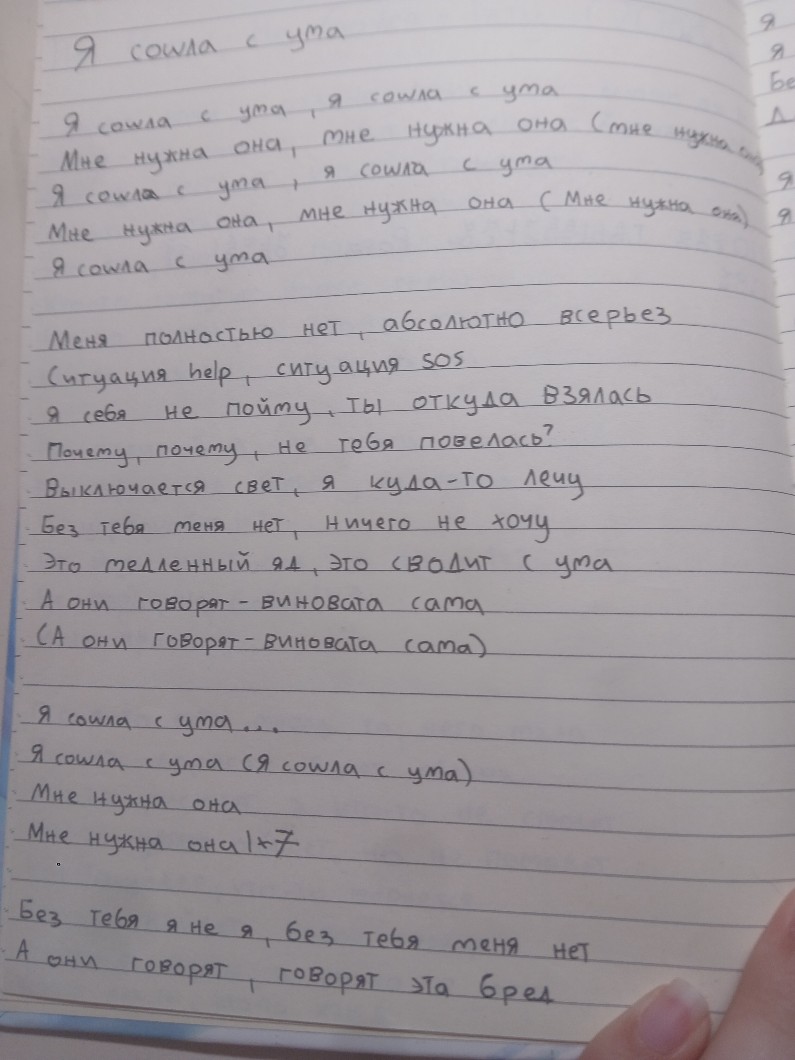 Я сошла с ума
Я сошла с ума, я сошла с ума
Мне нужна она, мне нужна она (мне нужна она)
Я сошла с ума, я сошла с ума
Мне нужна она, мне нужна она (Мне нужна она)
Я сошла с ума
Меня полностью нет, абсолютно всерьез
Ситуация help, ситуация sos
Я себя не пойму, ты откуда взялась
Почему, почему, не тебя повелась?
Выключается свет, я куда-то лечу
Без тебя меня нет, ничего не хочу
Это медленный яд, это сводит с ума
А они говорят - виновата сама
(А они говорят - виновата сама)
Я сошла с ума...
Я сошла с ума (Я сошла с ума)
Мне нужна она
Мне нужна она|×7
Без тебя я не я, без тебя меня нет
А они говорят, говорят эта бред
я
я
Бе
Д
я
я